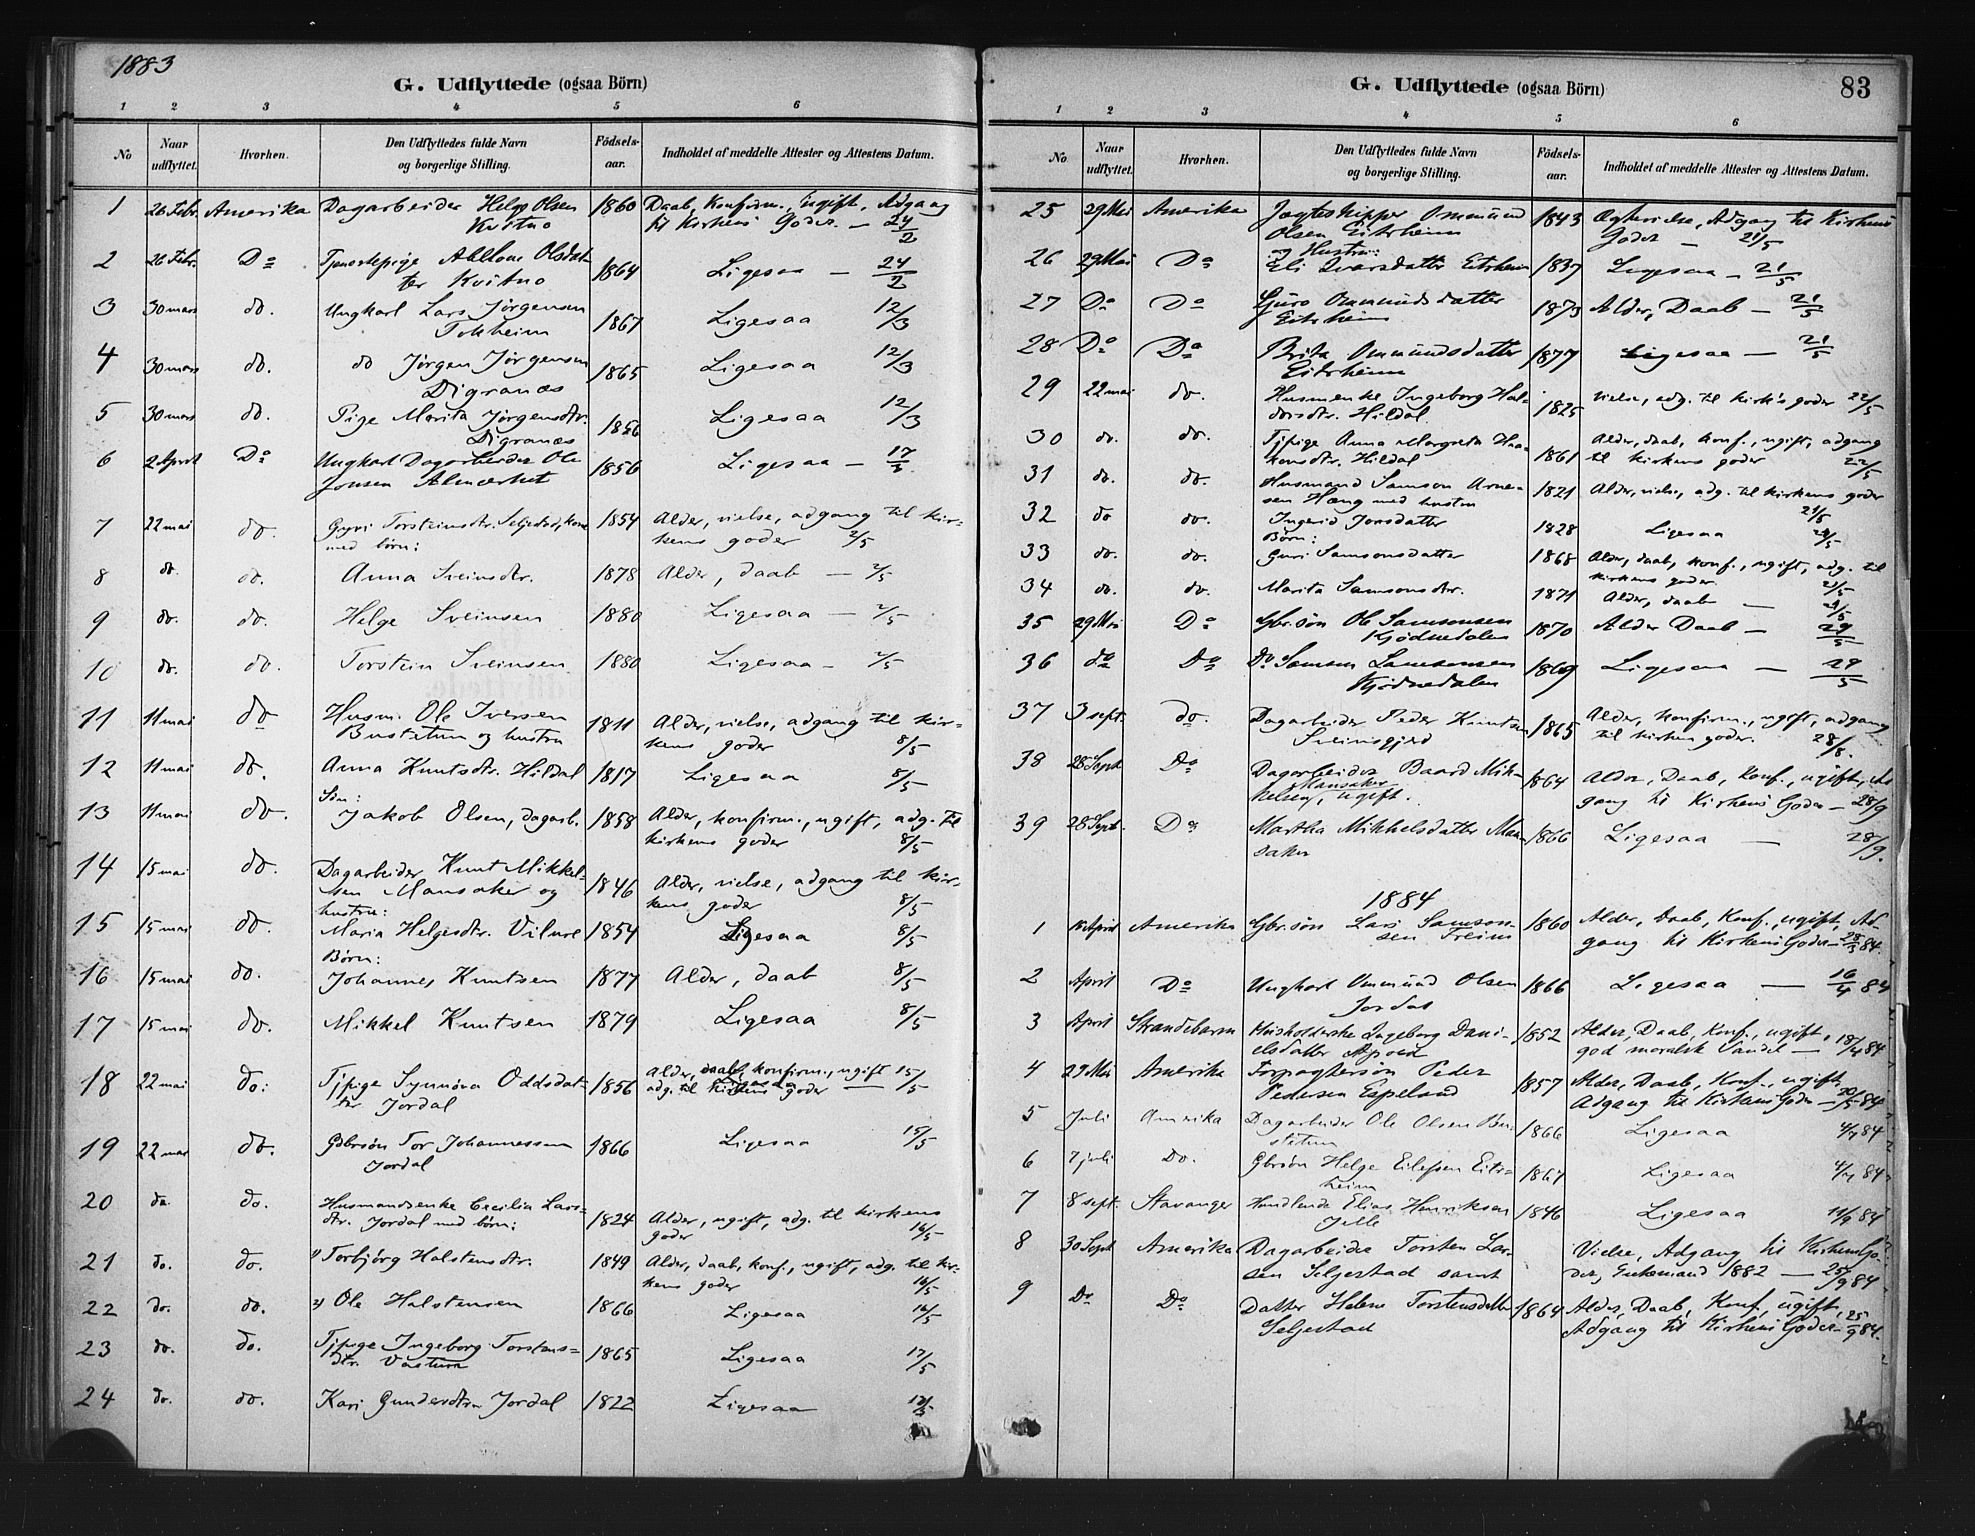 1883
G. Udflyttede (ogsaa Börn)
1 2 3 4 5 6
No Naar udflyttet. Hvorhen. Den Udflyttedes fulde Navn og borgerlige Stilling. Födsels-aar. Indholdet af meddelte Attester og Attestens Datum.
1 26 Febr. Amerika Dagarbeider Helge Olsen 1860 Daab, Konfirm., ugift, Adgang
Kvitno til Kirkens Goder. — 24/2
2 26 Febr. Do Tjenestepige Olsdat- 1864 Ligesaa — 24/2
ter Kvitno
3 30 mars do. Ungkarl Lars Jørgensen 1867 Ligesaa 12/3
Tokheim
4 30 mars do. do Jørgen Jørgensen 1865 Ligesaa 12/3
Digranæs
5 30 mars do. Pige Marita Jørgensdtr. 1856 Ligesaa 12/3
Digranæs
6 2 April Do Ungkarl Dagarbeider Ole 1856 Ligesaa — 17/3
Jonsen Almerket
7 22 mai do. Gyri Torsteinsdtr. Seljestad, kone 1854 Alder, vielse, adgang til kir-
med børn: kens goder 2/5
8 do. do. Anna Sveinsdtr. 1878 Alder, daab — 2/5
9 do. do. Helge Sveinsen 1880 Ligesaa — 2/5
10 do. do. Torstein Sveinsen 1880 Ligesaa — 2/5
11 11 mai do Husm. Ole Iversen 1811 Alder, vielse, adgang til kir-
Bustetun og hustru kens goder 8/5
12 11 mai do. Anna Knutsdtr. Hildal 1817 Ligesaa 8/5
Søn:
13 11 mai do. Jakob Olsen, dagarb. 1858 Alder, konfirm., ugift, adg. til
kirkens goder 8/5
14 15 mai do. Dagarbeider Knut Mikkel- 1846 Alder, vielse, adgang til kir-
sen Mansaker og kens goder 8/5
hustru:
15 15 mai do. Maria Helgesdtr. Vilure 1854 Ligesaa 8/5
Børn:
16 15 mai do. Johannes Knutsen 1877 Alder, daab 8/5
17 15 mai do. Mikkel Knutsen 1879 Ligesaa 8/5
18 22 mai do: Tjpige Synnøva Oddsdat- 1856 Alder, daab, konfirm., ugift 15/5
ter Jordal adg. til kirkens goder —
19 22 mai do. Gbrsøn Tor Johannessen 1866 Ligesaa 15/5
Jordal
20 do. do. Husmandsenke Cecilia Lars- 1824 Alder, ugift, adg. til kirkens
dtr. Jordal med børn: goder 16/5
21 do. do. 1) Torbjörg Halstensdtr. 1849 Alder, daab, konf., ugift, adg. til kir-
kens goder 16/5
22 do. do. 2) Ole Halstensen 1866 Ligesaa 16/5
23 do. do. Tjpige Ingeborg Torstens- 1865 Ligesaa 17/5
dtr.
24 do. do. Kari Gundersdtr Jordal 1822 Ligesaa
G. Udflyttede (ogsaa Börn) 83
1 2 3 4 5 6
No Naar udflyttet. Hvorhen. Den Udflyttedes fulde Navn og borgerlige Stilling. Födsels-aar. Indholdet af meddelte Attester og Attestens Datum.
25 29 Mai Amerika Jagteskipper Ommund 1843 Ægtevielse, Adgang til Kirkens
Olsen Eitrheim Goder — 21/5
og Hustru:
26 29 Mai Do Eli Ivarsdatter Eitrheim 1837 Ligesaa — 21/5
27 Do Do Guro Ommundsdatter 1873 Alder, Daab — 21/5
Eitrheim
28 Do Do Brita Ommundsdatter 1877 Ligesaa — 21/5
Eitrheim
29 22 mai do. Husmenke Ingeborg Hal- 1825 vielse, adg. til kirk's goder 22/5
dorsdtr. Hildal
30 do. do. Tjpige Anna Margreta Haa- 1861 Alder, daab, konf., ugift, adgang
konsdtr. Hildal til kirkens goder 22/5
31 do. do. Husmand Samson Arne- 1821 Alder, vielse, adg. til kirkens goder
sen Hæng med hustru 21/5
32 do do. Ingerid Jonsdatter 1828 Ligesaa 21/5
Børn:
33 do. do. Guri Samsonsdatter 1868 Alder, daab, konf., ugift, adg. til
kirkens goder. 21/5
34 do. do. Marita Samsonsdtr. 1871 Alder, daab — 21/5
35 29 Mai Do Gbr.søn Ole Samsonsen 1870 Alder Daab — 29/5
Kjødnedalen
36 do Do Do Samson Samsonsen 1869 Ligesaa — 29/5
Kjødnedalen
37 3 sept. do. Dagarbeider Peder Knutsen 1865 Alder, konfirm., ugift, adgang
Sveinsgjerd til kirkens goder. 28/8.
38 28 Sept Do Dagarbeider Baard Mik- 1864 Alder, Daab, Konf., ugift, Ad
Mansaker
kelsen, ugift. gang til Kirkens Goder — 28/9
39 28 Sept. Do Martha Mikkelsdatter Man 1866 Ligesaa — 28/9.
saker
1884
1 April Amerika Gbr.søn Lars Samson- 1860 Alder, Daab, Konf., ugift, Ad
sen Freim gang til Kirkens Goder — 28/3 84.
2 April Do Ungkarl Ommund Olsen 1866 Ligesaa — 16/4 84
Jordal
3 April Strandebarm Husholderske Ingeborg Dani- 1852 Alder, Daab, Konf., ugift,
elsdatter Apold god moralsk Vandel — 18/4 84
4 29 Mai Amerika Forpagtersøn Peder 1857 Alder, Daab, Konf., ugift,
Pedersen Espeland Adgang til Kirkens Goder — 20/5 84
5 Juli Amerika Dagarbeider Ole Olsen Bu- 1866 Ligesaa 4/7 84
stetun
6 7 juli Do. Gbrsøn Helge Eilefsen Eitr- 1867 Ligesaa 4/7 84
heim
7 8 sept. Stavanger Handlende Elias Henriksen 1846 Ligesaa 11/9 84
8 30 Sept Amerika Dagarbeider Torsten Lar- Vielse, Adgang til Kirkens Go-
sen Seljestad samt der, Enkemand 1882 — 25/9 84
9 Do Do Datter Helene Torstensdatter 1864 Alder, Daab, Konf., ugift,
Seljestad Adgang til Kirkens Goder 25/9 84.